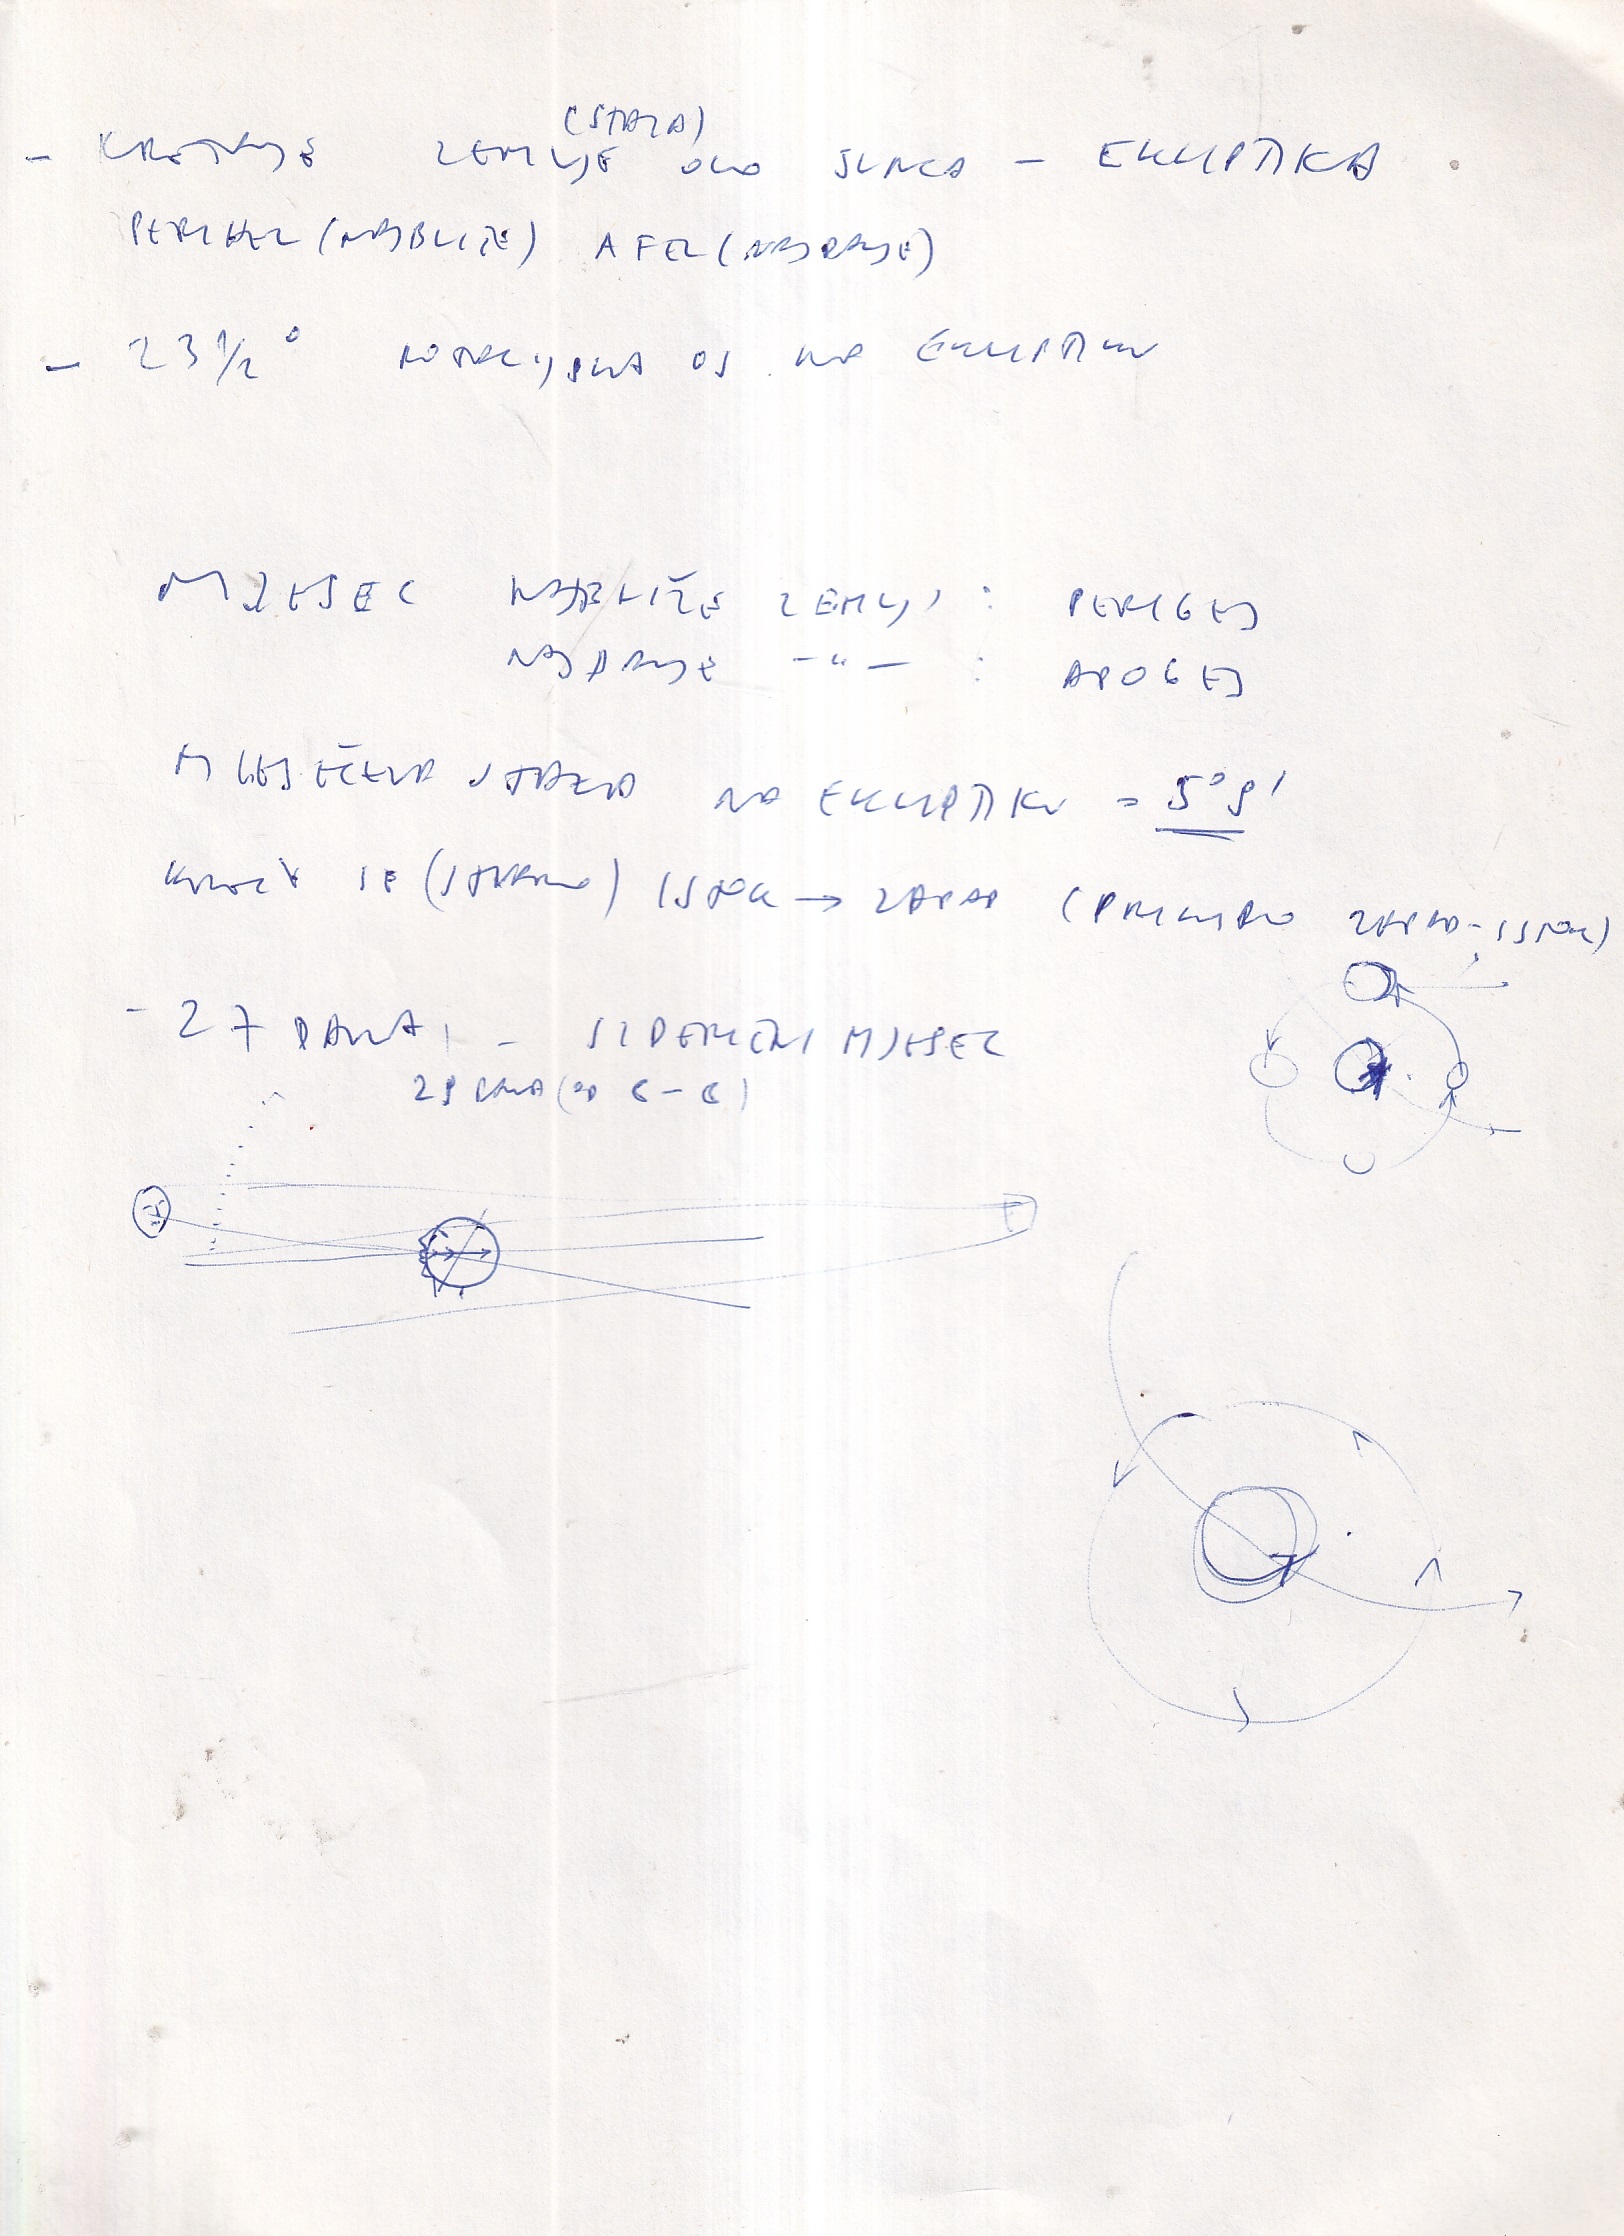 (STAZA)
- KRETANJE ZEMLJE OKO SUNCA - EKLIPTIKA
PERIHEL (NAJBLIŽE) AFEL (NAJDALJE)
- 23 1/2° ROTACIJSKA OS NA EKLIPTIKU
MJESEC NAJBLIŽE ZEMLJI : PERIGEJ
NAJDALJE -"- : APOGEJ
MJESEČEVA STAZA NA EKLIPTIKU = 5°9'
KREĆE SE (STVARNO) ISTOK → ZAPAD (PRIVIDNO ZAPAD-ISTOK)
- 27 DANA, - SIDERIČNI MJESEC
29 DANA (OD